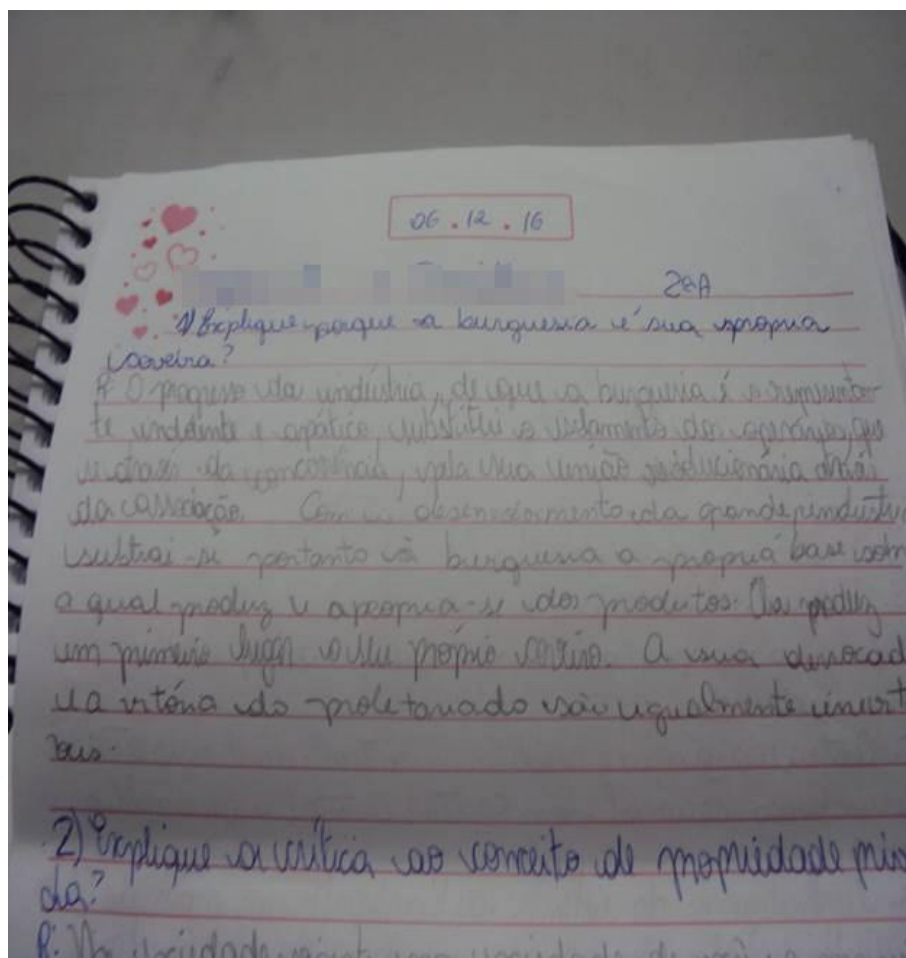 06.12.16
2ªA
1) Explique porque a burguesia é sua propria
coveira?
R: O progresso da indústria, de que a burguesia é o represertan
te indolente e apático, substitui o isolamento dos operários, que
através da concorrência, pela sua união revolucionária através
da associação. Com o desenvolvimento da grande industri
subtrai-se portanto à burguesia a propria base com
a qual produz e apropria-se dos produtos. Ela produz
um primeiro lugar o seu próprio coveiro. A sua derrocad
e a vitória do proletariado são igualmente
2) Explique a crítica ao conceito de propriedade priv
da?
R: Na sociedade uma sociedade de